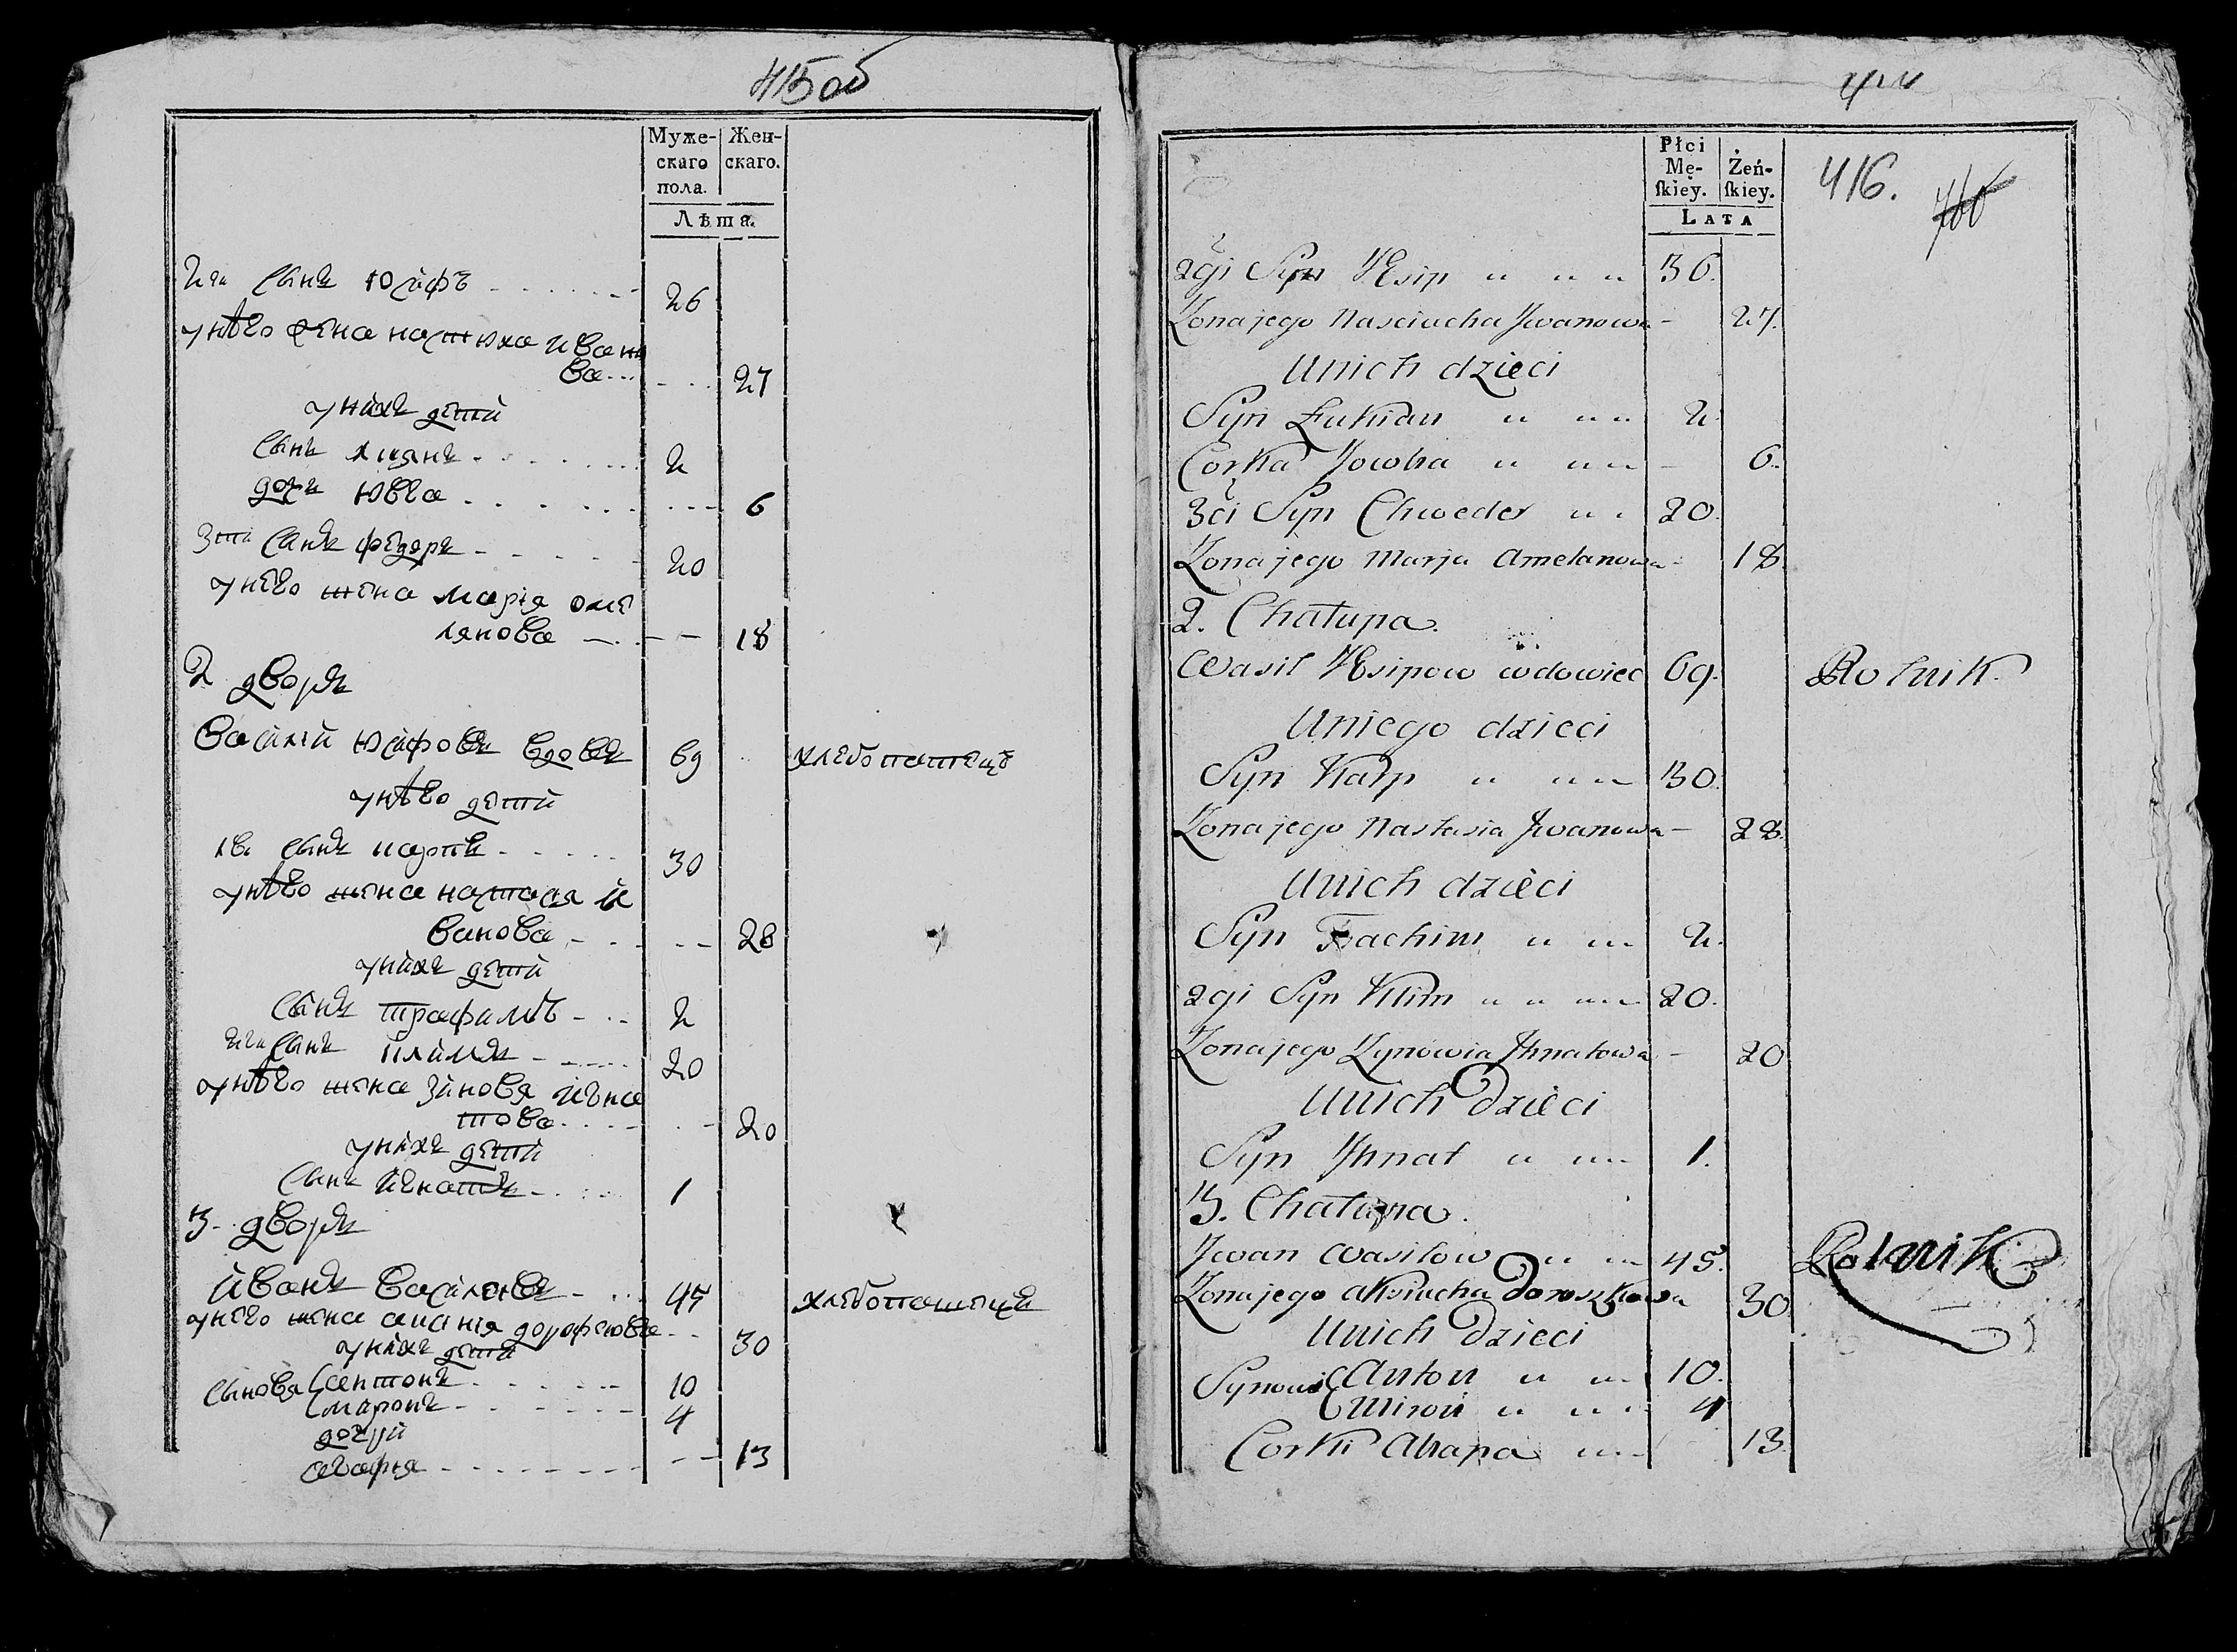 415 об
Муже-
скаго
пола.
Жен-
скаго.
Лѣта.
2 ги Сынъ Юсифъ 26
у нѣго жена настюха Ивано
ва 27
у нихъ детй
Сынъ лкянъ 2
дочъ Ювга 6
3 ти Сынъ федоръ 20
у него жена марія оме
лянова 18
2 дворъ
Василій Юсифовъ вдовъ 69 хлебопашецъ
у нѣго детй
1 в. сынъ карпъ 30
у нѣго жена настася И
ванова 28
у нихъ детй
Сынъ трафимъ 2
2 ги Сынъ климъ 20
у нѣго жена зиновя Игна
това 20
у нихъ детй
Сынъ Игнатъ 1
3 дворъ
Иванъ Василювъ 45 хлебопашецъ
у него жена аксиня дорофеова 30
у нихъ детй
Сыновя антонъ 10
миронъ 4
дочри
агафія 13
Płci
Mę-
ſkiey.
Żeń-
ſkiey.
LATA
416.
2gi Syn Esip 36.
Zona jego Nasciucha Jwanowa 27.
Unich dzieci
Syn Łukian 2
Corka Jowha 6.
3ci Syn Chweder 20.
Zona jego Marja Amelanowa 18.
2. Chałupa.
Wasil Esipow wdowiec 69. Rolnik
Uniego dzieci
Syn Karp 30.
Zona jego Nastasia Jwanowa 28.
Unich dzieci
Syn Trachim 2.
2gi Syn Klim 20.
Zona jego Zynowia Jhnatowa 20
Unich Dzieci
Syn Jhnat 1.
3. Chałupa.
Jwan Wasilow 45. Rolnik
Zona jego Aksiucha Doroszkowa 30
Unich Dzieci
Synowi Anton 10.
Miron 4
Corki Ahapa 13